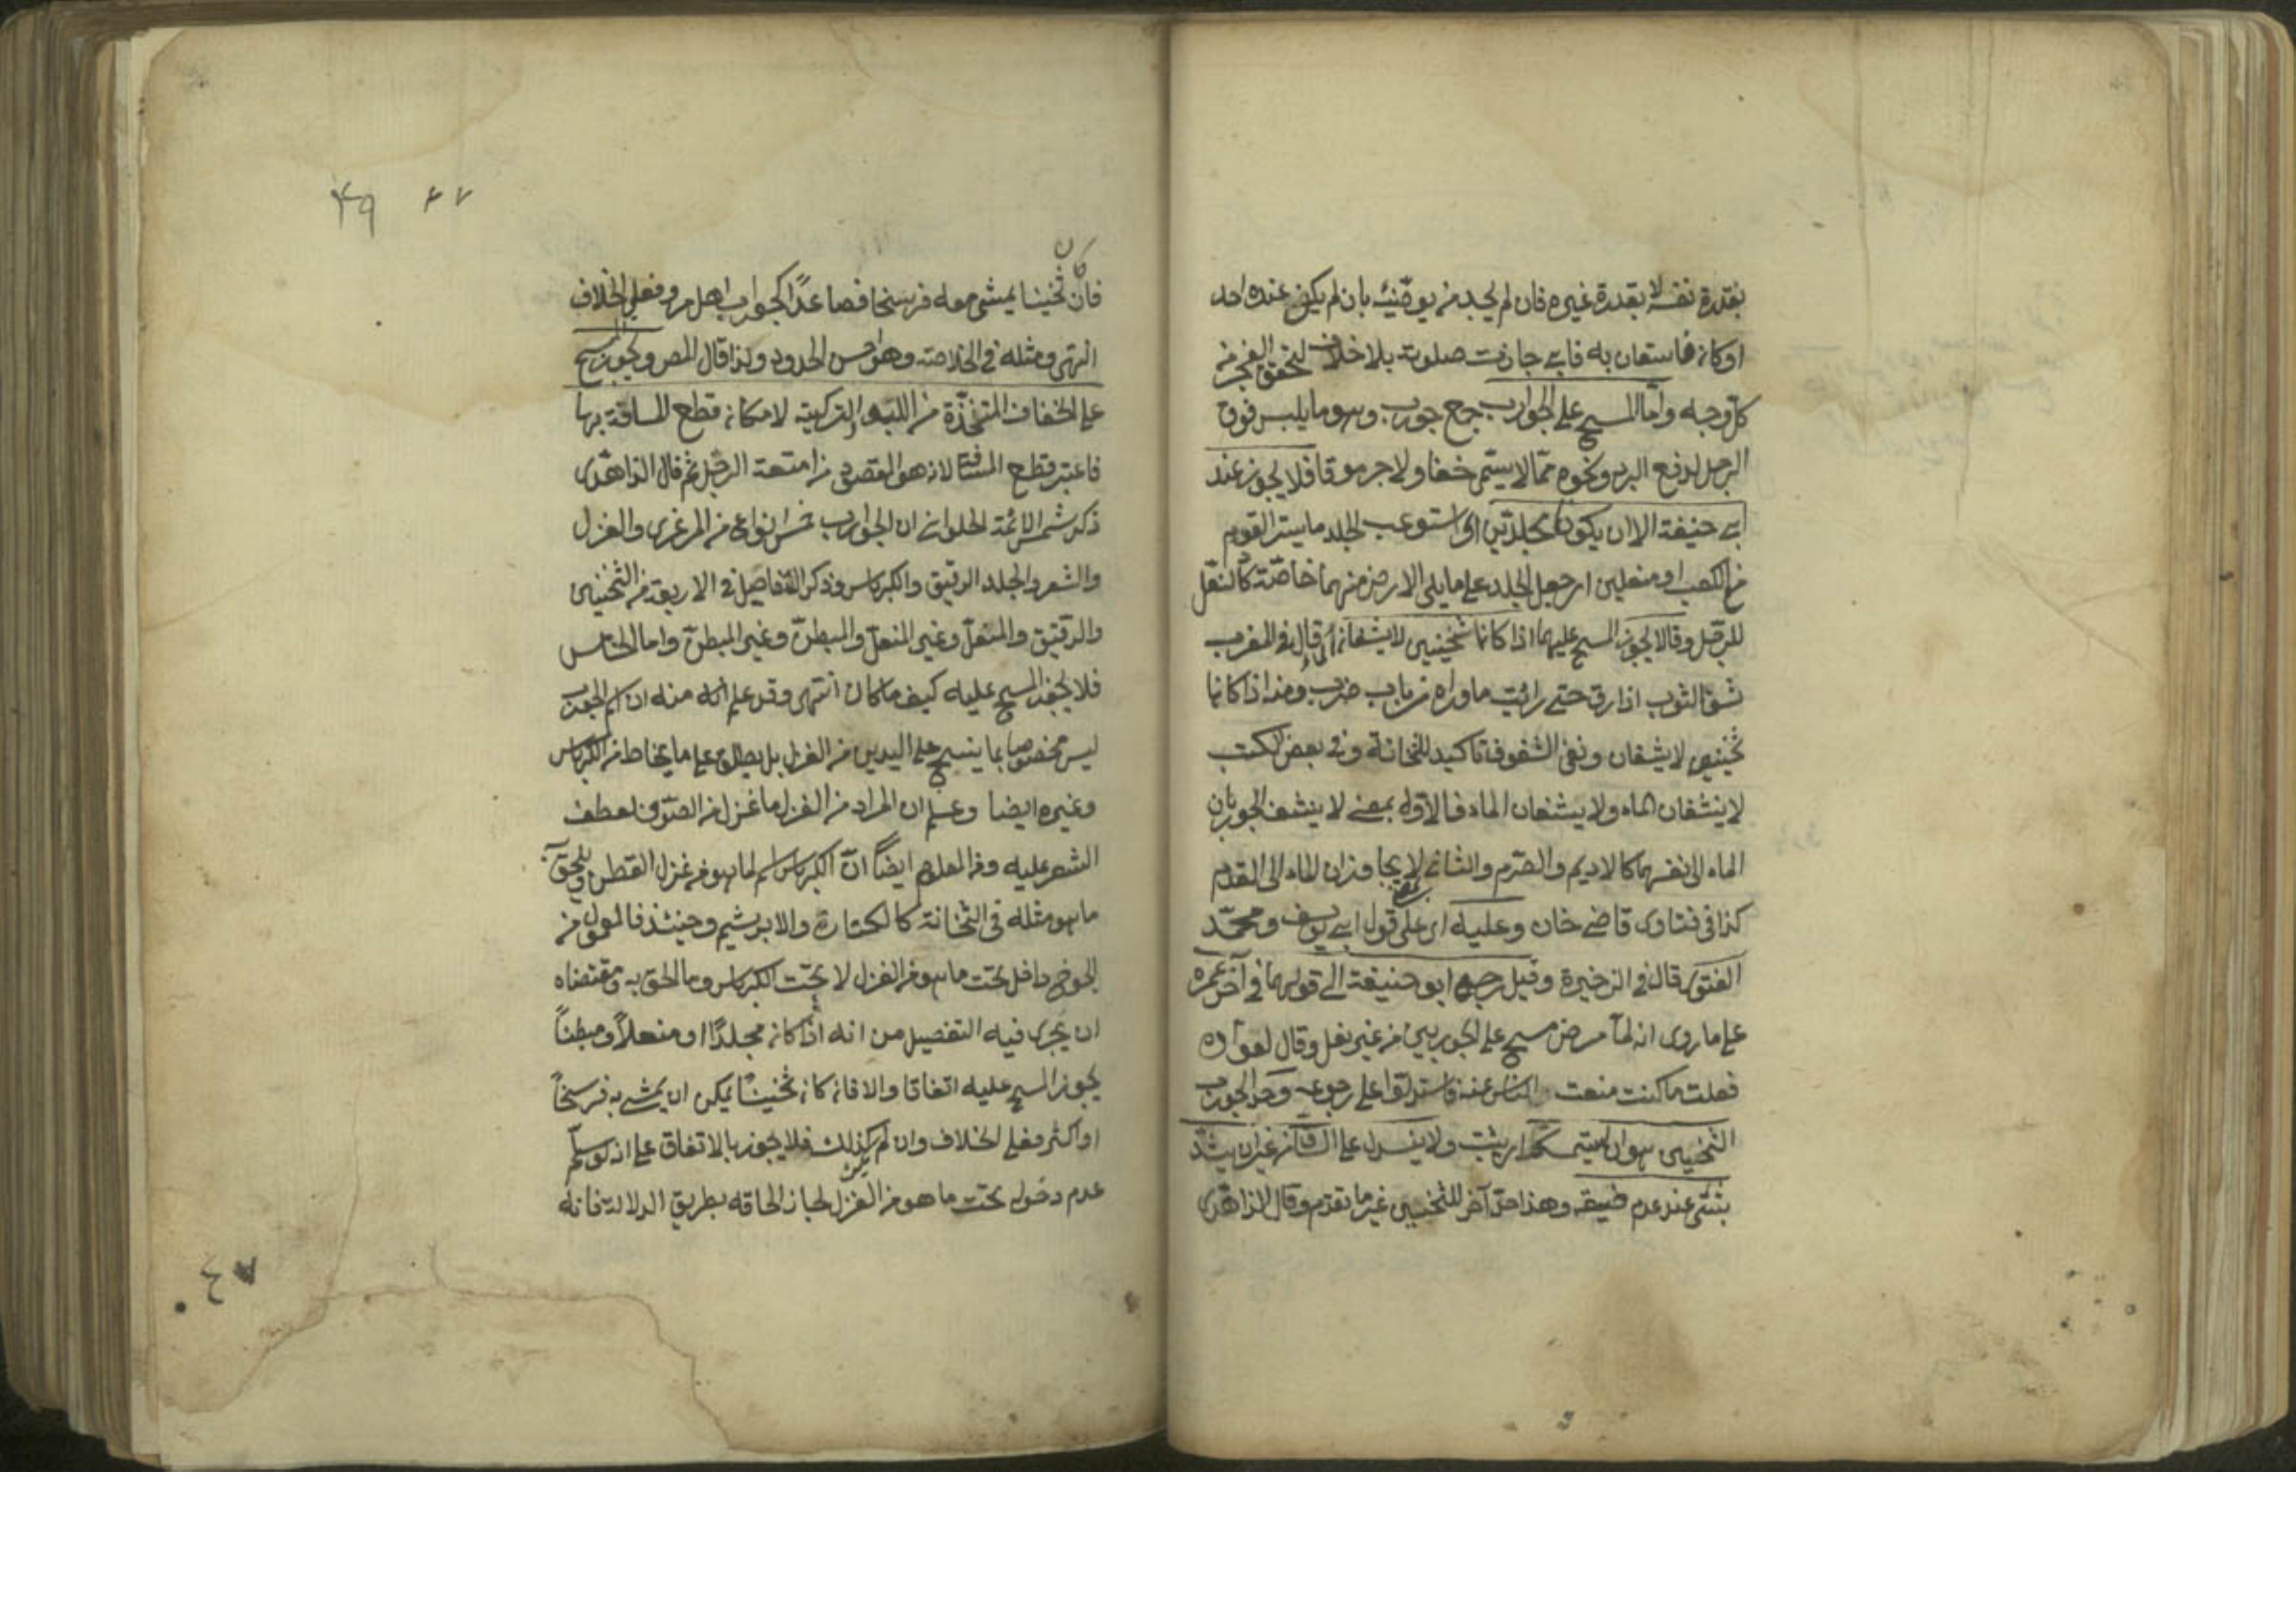 بقدرة نفسه لا بقدرة غيره فان لم يجد من يوضئه بان لم يكن عنده احد
او كان فاستعان به فابى جازت صلوته بلا خلاف لتحقق العجز من
كل وجه واما المسح على الجوارب جمع جورب وهو ما يلبس فوق
الرجل لدفع البرد ونحوه مما لا يسمى خفا ولا جرموقا فلا يجوز عند
ابى حنيفة الا ان يكونا مجلدين اى استوعب الجلد ما يستر القدم
من الكعب او منعلين اى جعل الجلد على ما يلى الارض منهما خاصة كالنعل
للرجل وقالا يجوز المسح عليهما اذا كانا ثخينين لا يشفان قال فى المغرب
شف الثوب اذا رق حتى رايت ما وراه من باب ضرب ومنه اذا كانا
ثخينين لا يشفان ونفى الشفوف تاكيد للثخانة وفى بعض الكتب
لا ينشفان الماء ولا يشفان الماء فالاول بمعنى لا ينشف الجوربان
الماء الى نفسهما كالاديم والصرم والثانى لا يجاوزان الماء الى القدم
كذا فى فتاوى قاضى خان وعليه اى على قول ابى يوسف ومحمد
الفتوى قال فى الذخيرة وقيل رجع ابو حنيفة الى قولهما فى آخر عمره
على ما روى انه لما مرض مسح على الجوربين من غير نعل وقال لعواده
فعلت ما كنت منعت الناس عنه فاستدلوا على رجوعه وحد الجورب
الثخين هو ان يستمسك اى يثبت ولا ينسدل على الساق من غير ان يشد
بشئ عند عدم ضيقه وهذا حد آخر للثخين غير ما تقدم وقال الزاهدى
٤٩ ٤٧
فان كان ثخينا يمشى معه فرسخا فصاعدا كجوارب اهل مرو فعلى الخلاف
انتهى ومثله فى الخلاصة وهو احسن الحدود ولذا قال المص ويجوز المسح
على الخفاف المتخذة من اللبود التركية لامكان قطع المسافة بها
فاعتبر قطع المسافة لانه هو المقصود من امتعة الرجل ثم قال الزاهدى
ذكر شمس الائمة الحلوانى ان الجوارب خمس انواع من المرعزى والغزل
والشعر والجلد الرقيق والكرباس وذكر التفاصيل فى الاربعة من الثخين
والرقيق والمنعل وغير المنعل والمبطن وغير المبطن واما الخامس
فلا يجوز المسح عليه كيف ما كان انتهى وقد علم منه ان اسم الجورب
ليس مخصوصا بما ينسج على اليدين من الغزل بل يطلق على ما يخاط من الكرباس
وغيره ايضا وعلم ان المراد من الغزل ما غزل من الصوف لعطف
الشعر عليه ومن المعلوم ايضا ان الكرباس اسم لما هو من غزل القطن ويلحق به
ما هو مثله فى الثخانة كالكتان والابريشم وحينئذ فالمعمول من
الجوخ داخل تحت ما هو من الغزل لا تحت الكرباس وما الحق به ومقتضاه
ان يجرى فيه التفصيل من انه اذا كان مجلدا او منعلا او مبطنا
يجوز المسح عليه اتفاقا والا فان كان ثخينا يمكن ان يمشى به فرسخا
او اكثر فعلى الخلاف وان لم يكن كذلك فلا يجوز بالاتفاق على انه لو سلم
عدم دخوله تحت ما هو من الغزل لجاز الحاقه بطريق الدلالة فانه
٤٧